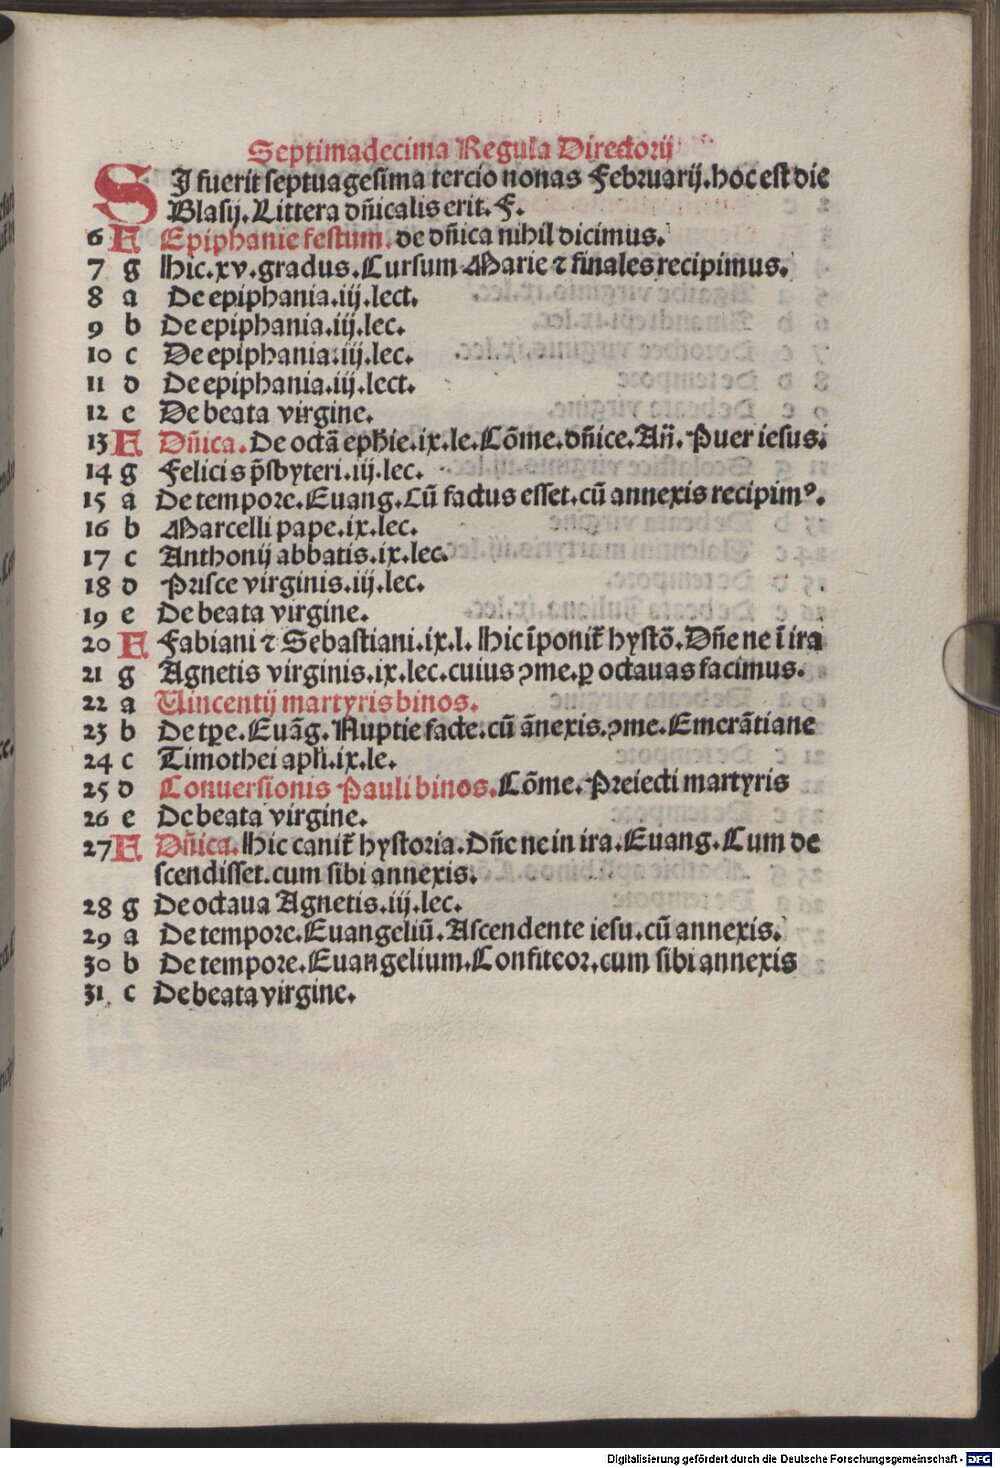 Septimadecima Regula Directorij
SI fuerit septuagesima tercio nonas Februarij. hoc est die
Blasij. Littera dñicalis erit. F.
6 F Epiphanie festum. de dñica nihil dicimus.
7 g Hic. xv. gradus. Cursum Marie ⁊ finales recipimus.
8 a De epiphania. iij. lect.
9 b De epiphania. iij. lec.
10 c De epiphania. iij. lec.
11 d De epiphania. iij. lect.
12 e De beata virgine.
13 F Dñica. De octã eph̄ie. ix. le. Cõme. dñice. Añ. Puer iesus.
14 g Felicis p̃sbyteri. iij. lec.
15 a De tempore. Euang. Cũ factus esset. cũ annexis recipimꝰ.
16 b Marcelli pape. ix. lec.
17 c Anthonij abbatis. ix. lec.
18 d Prisce virginis. iij. lec.
19 e De beata virgine.
20 F Fabiani ⁊ Sebastiani. ix. l. Hic ĩponit̃ hystõ. Dñe ne ĩ ira
21 g Agnetis virginis. ix. lec. cuius ꝯme. ꝑ octauas facimus.
22 a Uincentij martyris binos.
23 b De tꝑe. Euãg. Nuptie facte. cũ ãnexis. ꝯme. Emerãtiane
24 c Timothei apli. ix. le.
25 d Conuersionis Pauli binos. Cõme. Preiecti martyris
26 e De beata virgine.
27 F Dñica. Hic canit̃ hystoria. Dñe ne in ira. Euang. Cum de
scendisset. cum sibi annexis.
28 g De octaua Agnetis. iij. lec.
29 a De tempore. Euangeliũ. Ascendente iesu. cũ annexis.
30 b De tempore. Euangelium. Confiteor. cum sibi annexis
31 c De beata virgine.
Digitalisierung gefördert durch die Deutsche Forschungsgemeinschaft - DFG